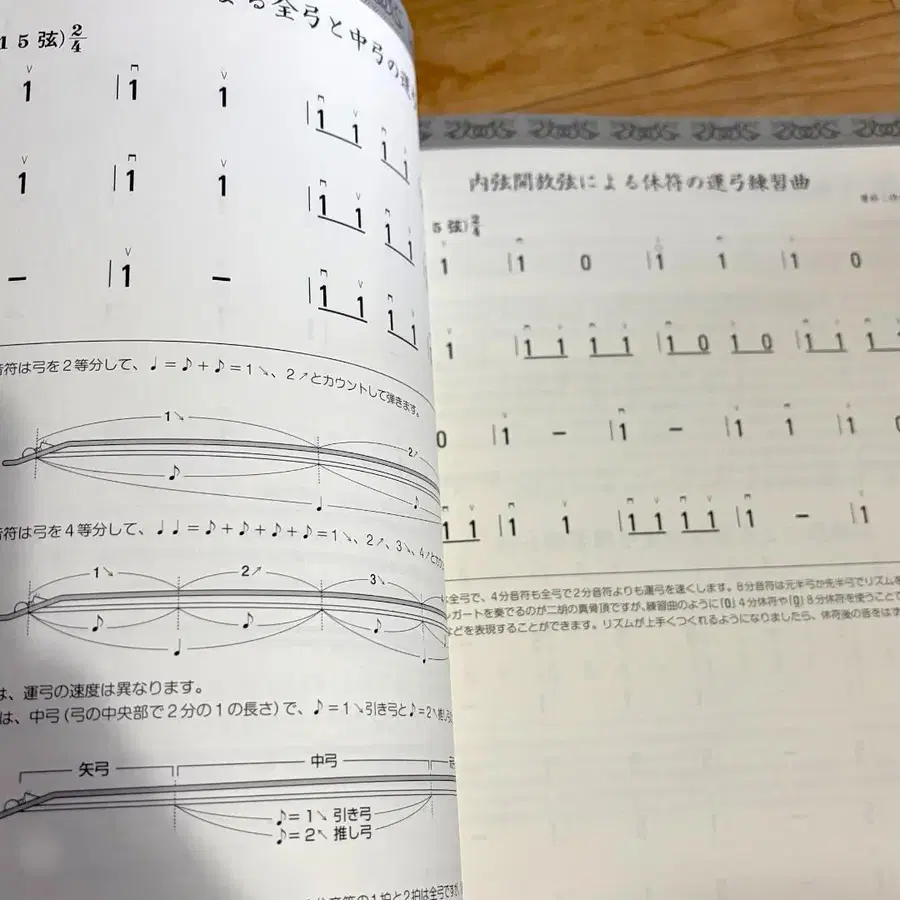 よる全弓と中弓の運
1 5 弦) 2/4
1 | 1 1 | 1 1 1 1
1 | 1 1 | 1 1 1 1
− | 1 − | 1 1 1 1
音符は弓を2等分して、♩=♪+♪=1↘、2↗とカウントして弾きます。
1↘
2↗
♪
♪
♩
音符は弓を4等分して、♩♩=♪+♪+♪+♪=1↘、2↗、3↘、4↗とカウ
1↘ 2↗ 3↘
♪ ♪ ♪
♩ ♩
は、運弓の速度は異なります。
は、中弓(弓の中央部で2分の1の長さ)で、♪=1↘引き弓と♪=2↖推し
矢弓 中弓
♪=1↘ 引き弓
♪=2↖ 推し弓
音符の1拍と2拍は全弓ですが
内弦開放弦による休符の運弓練習曲
5 弦) 2/4
1 | 1 0 | 1 1 | 1 0
1 | 1 1 1 1 | 1 0 1 0 | 1 1 1 1
0 | 1 − | 1 − | 1 1 | 1 0
1 1 | 1 1 | 1 1 1 1 | 1 − | 1
は全弓で、4分音符も全弓で2分音符よりも運弓を速くします。8分音符は元半弓か先半弓でリズムを
レガートを奏でるのが二胡の真骨頂ですが、練習曲のように「0」4分休符や「0」8分休符を使うことで
などを表現することができます。リズムが上手くつくれるようになりましたら、休符後の音をはず